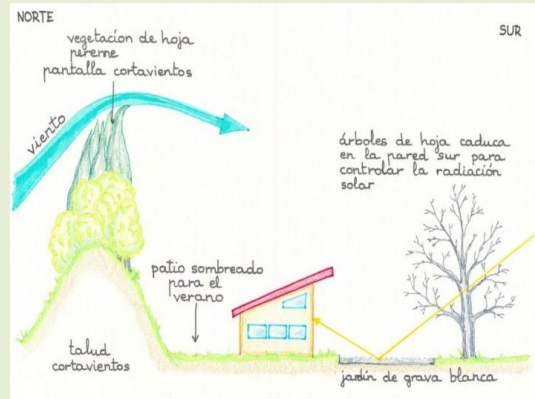 NORTE
SUR
vegetación de hoja
pereme
pantalla cortavientos
viento
árboles de hoja caduca
en la pared sur para
controlar la radiación
solar
patio sombreado
para el
verano
talud
cortavientos
jardín de grava blanca